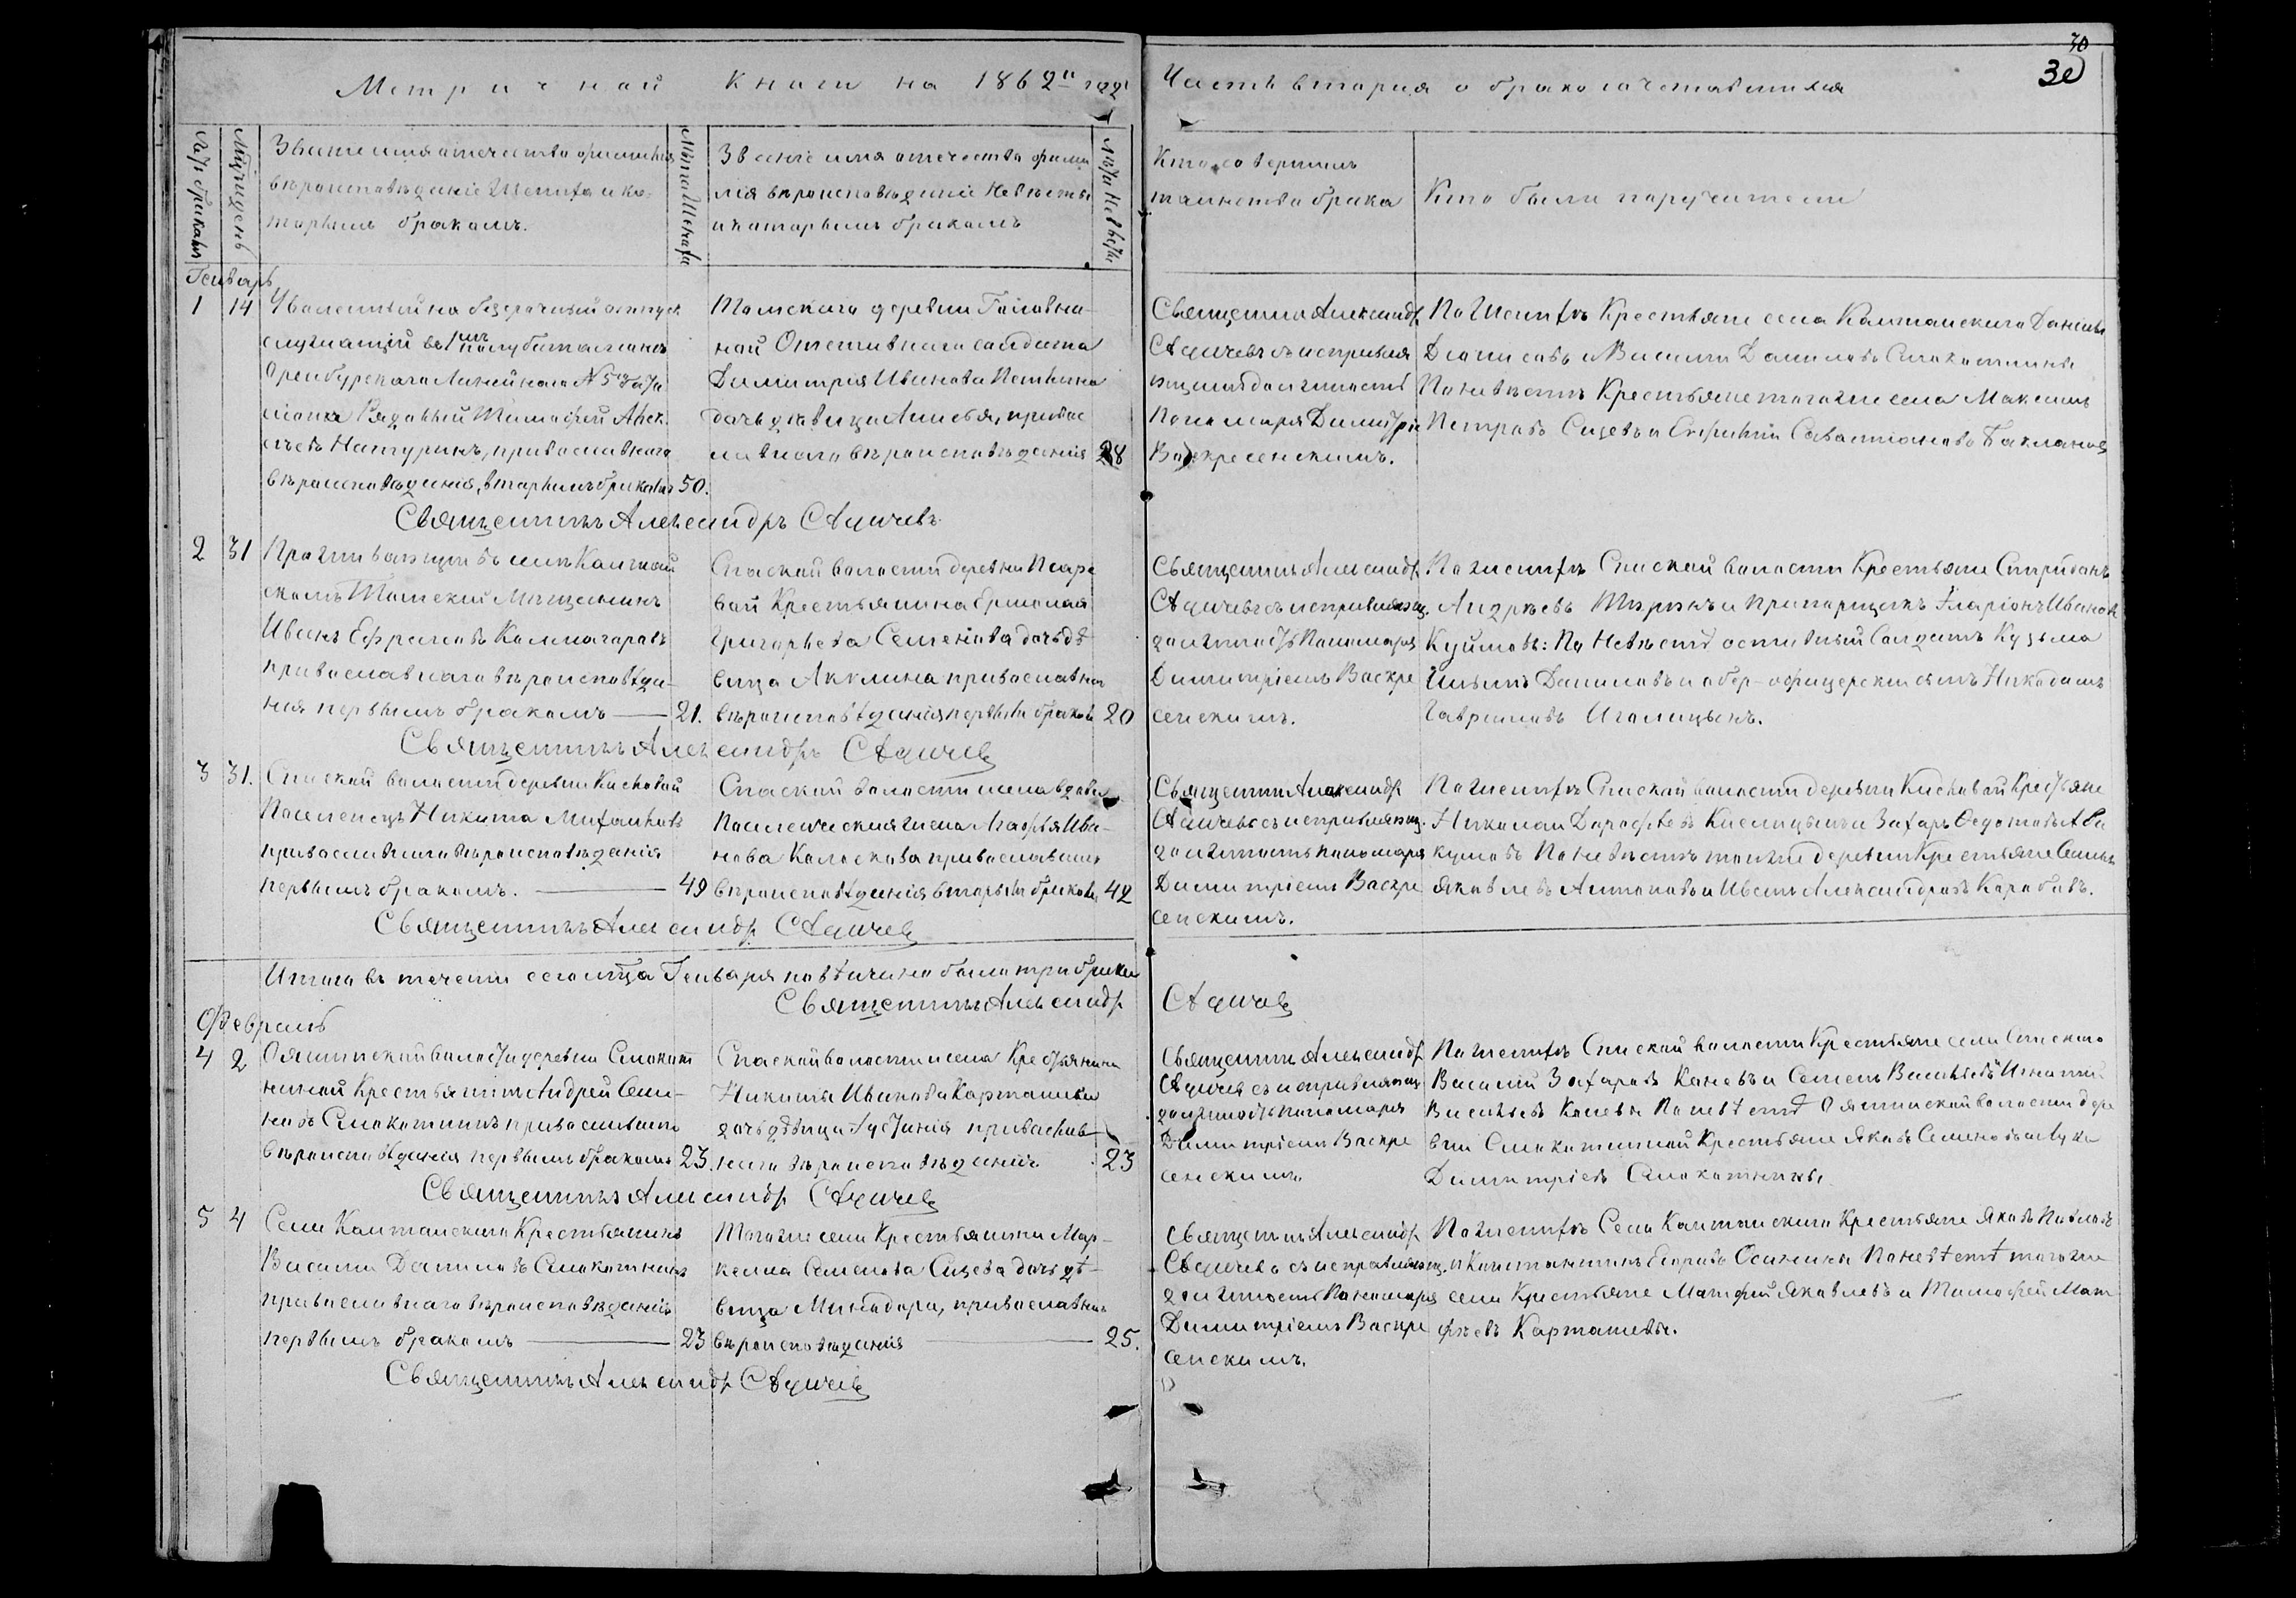 Метричной Книги на 1862й годъ
Часть вторая о бракосочетавшихся
30
30
Мѣсяцъ и день
Званіе имя отечество фамилія
вѣроисповѣданіе Жениха и ко-
торымъ бракомъ.
Лѣта Жениха
Званіе имя отечество фами
лія вѣроисповѣданіе Невѣсты
и которымъ бракомъ
Лѣта Невѣсты
Кто совершилъ
таинство брака
Кто были поручители
Генварь
1 14
Уволенный на безсрочный отпускъ
служащій въ полубаталіонѣ
Оренбурскаго Линейнаго №5го бата
ліона Рядовый Тимофей Алек
сѣевъ Натуринъ, православнаго
вѣроисповѣданія, вторымъ бракомъ 50.
Томскаго деревни Головни-
ной Отставнаго салдата
Димитрія Иванова Петкина
дочь дѣвица Анисья, правос
лавнаго вѣроисповѣданія 28
Священникъ Александръ
Сѣдичевъ съ исправля
ющимъ должность
Пономаря Димитріе
Воскресенскимъ.
По Женихѣ Крестьяне села Калтайскаго
Денисовъ и Василій Даниловъ Слокотнины
По невѣстѣ Крестьяне того же села Максимъ
Петровъ Сизевъ и Савостіановъ Баклановъ
Священникъ Александръ Сѣдичевъ
2 31
Проживающій въ селѣ Калтай
скомъ Томскій Мѣщанинъ
Иванъ Ефремовъ Калмогаровъ
православнаго вѣроисповѣда-
нія первымъ бракомъ — 21.
Спаской волости деревни Писаре
вой Крестьянина Ермолая
Григорьева Семенова дочь дѣ-
вица Акулина православнаго
вѣроисповѣданія первымъ бракомъ 20
Священникъ Александръ
Сѣдичевъ съ исправляющ.
должность Пономаря
Димитріемъ Воскре
сенскимъ.
По женихѣ Спаской волости Крестьяне
Андреевъ и Прапорщикъ Иларіонъ Ивановъ
Куймовъ: По Невѣстѣ отставный Салдатъ Кузьма
Ильинъ Даниловъ и обер-офицерскій сынъ Никодимъ
Гавриловъ Иголицынъ.
Священникъ Александръ Сѣдичевъ
3 31.
Спаской волости деревни Кисловой
Поселенецъ Никита Михайловъ
православнаго вѣроисповѣданія
первымъ бракомъ. — 49
Спаской волости села вдова
Поселенческая жена Марфа Ива-
нова Колоскова православнаго
вѣроисповѣданія вторымъ бракомъ 42
Священникъ Александръ
Сѣдичевъ съ исправляющ.
должность пономаря
Димитріемъ Воскре
сенскимъ.
По женихѣ Спаской волости деревни Кисловой Крестьяне
Николай Дорофѣевъ Кислицынъ и Захаръ Федотовъ Ава
кумовъ По невѣстѣ той же деревни Крестьяне Семенъ
Яковлевъ Антоновъ и Иванъ Александровъ Коробовъ.
Священникъ Александръ Сѣдичевъ
Итого въ теченіи сего мѣсяца Генваря повѣнчано было три брака
Священникъ Александръ Сѣдичевъ
Февраль
4 2
Ояшинской волости деревни Слокот
ниной Крестьянинъ Андрей Семе-
новъ Слокотнинъ православнаго
вѣроисповѣданія первымъ бракомъ 23.
Спаской волости и села Крестьянина
Никиты Иванова Карташева
дочь дѣвица Іустинія православ-
наго вѣроисповѣданія 23
Священникъ Александръ
Сѣдичевъ съ исправляющ.
должность пономаря
Димитріемъ Воскре
сенскимъ.
По женихѣ Спаской волости Крестьяне села Спаскаго
Василій Захаровъ Каневъ и Семенъ Васильевъ Игнатій
Васильевъ Каневы По невѣстѣ Ояшинской волости дере
вни Слокотниной Крестьяне Яковъ Семеновъ и Лука
Димитріевъ Слокотнины.
Священникъ Александръ Сѣдичевъ
5 4
Села Калтайскаго Крестьянинъ
Василій Даниловъ Слокотнинъ
православнаго вѣроисповѣданія
первымъ бракомъ — 23
Того же села Крестьянина Мар-
келла Семенова Сизева дочь дѣ-
вица Минодора, православнаго
вѣроисповѣданія — 25.
Священникъ Александръ
Сѣдичевъ съ исправляющ.
должность Пономаря
Димитріемъ Воскре
сенскимъ.
По женихѣ Села Калтайскаго Крестьяне Яковъ Павловъ
и Константинъ Егоровъ Осинины По невѣстѣ того же
села Крестьяне Матфей Яковлевъ и Тимофей Мат
фѣевъ Карташевы.
Священникъ Александръ Сѣдичевъ